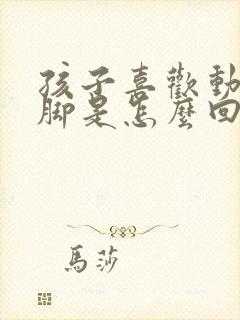 孩子喜歡動
腳是怎麼回
馬莎